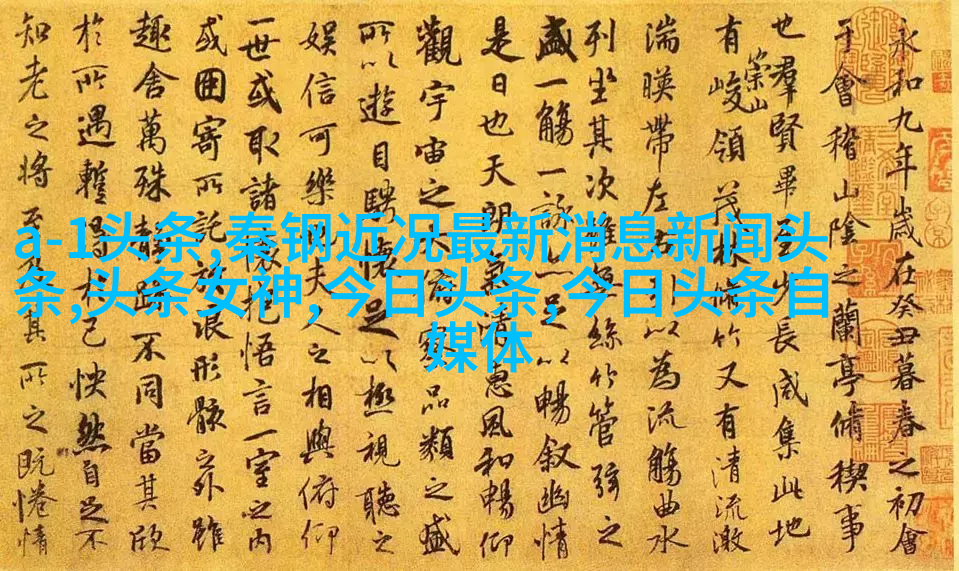 a-1头条,秦钢近况最新消息新闻头
条,头条女神,今日头条,今日头条自
媒体
永和九年歲在癸丑暮春之初會
于會稽山陰之蘭亭脩稧事
也羣賢畢至少長咸集此地
有崇山峻領茂林脩竹又有清流激
湍暎帶左右引以為流觴曲水
列坐其次雖無絲竹管弦之
盛一觴一詠亦足以暢叙幽情
是日也天朗氣清惠風和暢仰
觀宇宙之大俯察品類之盛
所以遊目騁懷足以極視聽之
娛信可樂也夫人之相與俯仰
一世或取諸懷抱悟言一室之内
或因寄所託放浪形骸之外雖
趣舍萬殊靜躁不同當其欣
於所遇暫得於己怏然自足不
知老之將至及其所之既惓情